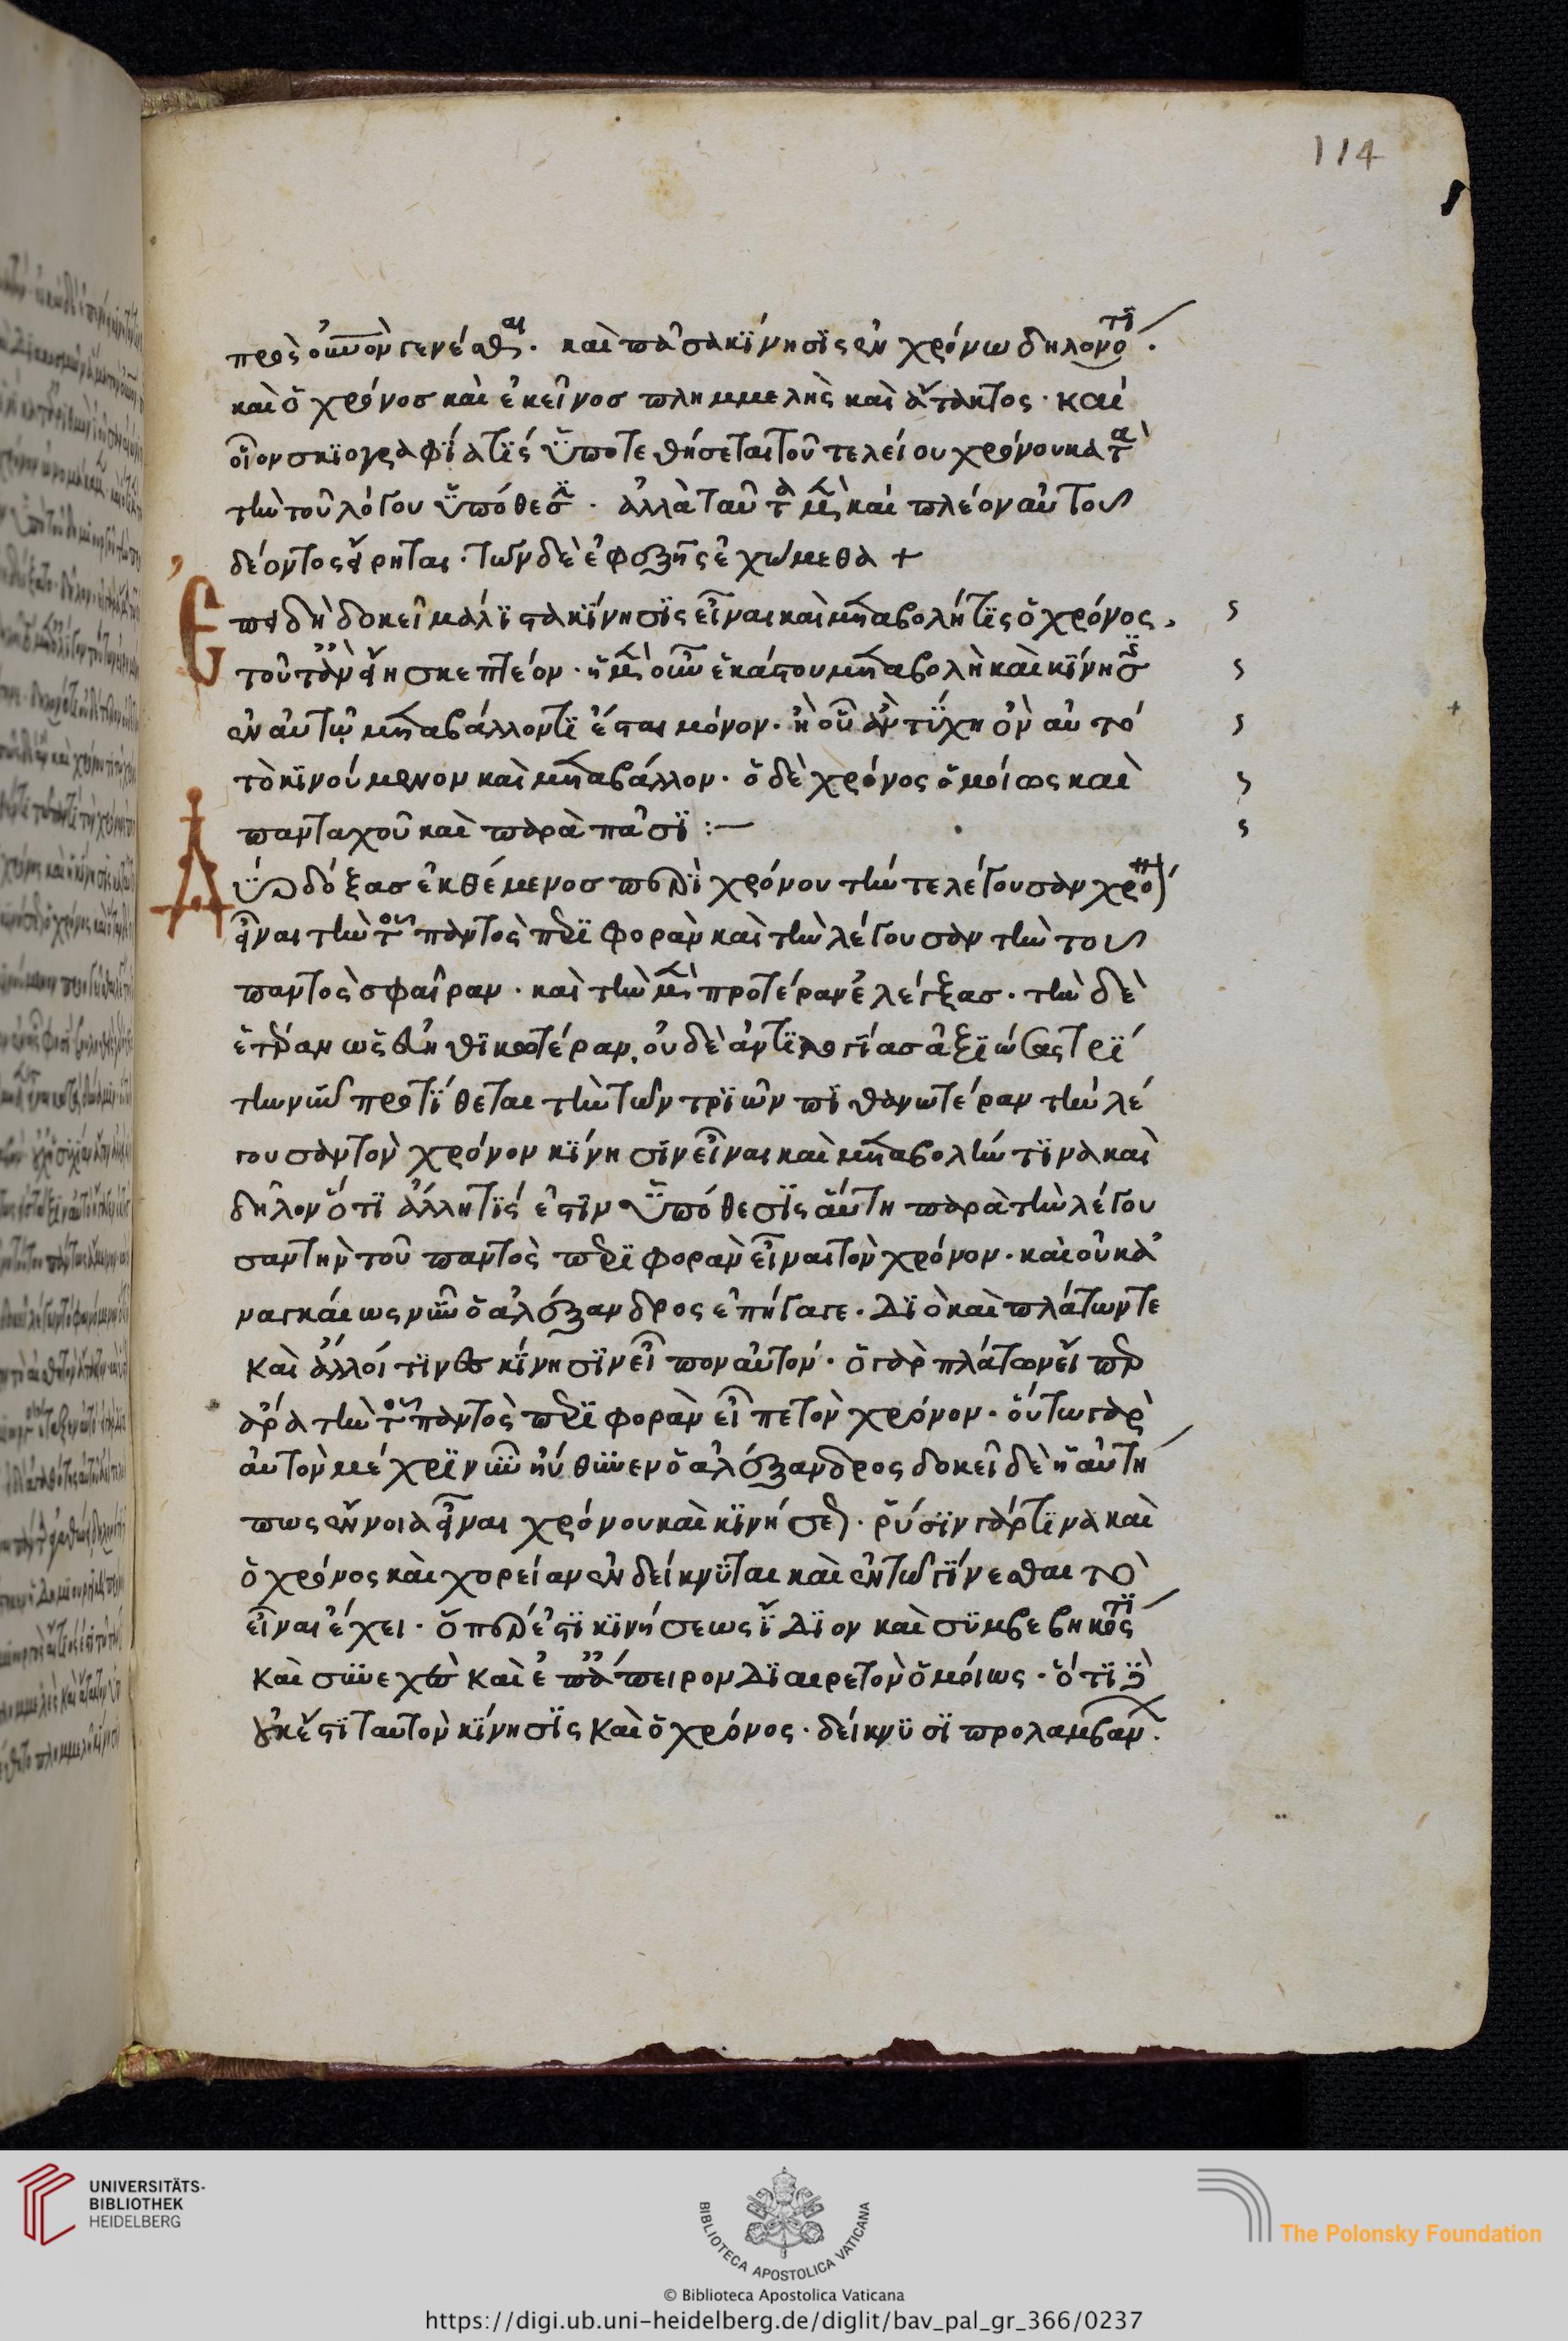 114
πρὸς οὐρανὸν γενέσθαι. καὶ πᾶσα κίνησις ἐν χρόνω δηλονότι.
καὶ ὁ χρόνος καὶ ἐκεῖνος πλημμελὴς καὶ ἄτακτος. καὶ
οἷον σκιογραφία τίς ὑποτεθήσεται τοῦ τελείου χρόνου κατὰ
τὴν τοῦ λόγου ὑπόθεσιν. ἀλλὰ ταῦτα μὲν καὶ πλέον αὐτοῦ
δέοντος εἴρηται. τῶν δὲ ἐφεξῆς ἐχώμεθα +
Ἐπεὶ δὴ δοκεῖ μάλιστα κίνησις εἶναι καὶ μεταβολή τις ὁ χρόνος.
τοῦτ' ἂν εἴη σκεπτέον. ἡ μὲν οὖν ἑκάστου μεταβολὴ καὶ κίνησις
ἐν αὐτῷ μεταβάλλοντι ἔσται μόνον. ἢ οὗ ἂν τύχη ὂν αὐτό
τὸ κινούμενον καὶ μεταβάλλον. ὁ δὲ χρόνος ὁμοίως καὶ
πανταχοῦ καὶ παρὰ πᾶσι :—
Δύο δόξας ἐκθέμενος περὶ χρόνου τήν τε λέγουσαν χρόνον
εἶναι τὴν τοῦ παντὸς περιφορὰν καὶ τὴν λέγουσαν τὴν τοῦ
παντὸς σφαῖραν. καὶ τὴν μὲν προτέραν ἐλέγξας. τὴν δὲ
ἑτέραν ὡς εὐηθικωτέραν, οὐδὲ ἀντιλογίας ἀξιώσας τρί
την νῦν προτίθεται τὴν τῶν τριῶν πιθανωτέραν τὴν λέ
γουσαν τὸν χρόνον κίνησιν εἶναι καὶ μεταβολήν τινα καὶ
δῆλον ὅτι ἄλλη τίς ἐστιν ὑπόθεσις αὕτη παρὰ τὴν λέγου
σαν τὴν τοῦ παντὸς περιφορὰν εἶναι τὸν χρόνον. καὶ οὐκ ἀ
ναγκαίως νῦν ὁ ἀλέξανδρος ἐπήγαγε. Διὸ καὶ πλάτων τε
καὶ ἄλλοί τινες κίνησιν εἶπον αὐτόν. ὁ γὰρ πλάτων εἴπερ
ἄρα τὴν τοῦ παντὸς περιφορὰν εἶπε τὸν χρόνον. οὕτω γὰρ
αὐτὸν μέχρι νῦν ηὔθυνεν ὁ ἀλέξανδρος δοκεῖ δὲ ἡ αὐτή
πως ἔννοια εἶναι χρόνου καὶ κινήσεως. ῥύσιν γάρ τινα καὶ
ὁ χρόνος καὶ χορείαν ἐνδείκνυται καὶ ἐν τῶ γίνεσθαι τὸ
εἶναι ἔχει. ὅπερ ἐστὶ κινήσεως ἴδιον καὶ συμβεβηκός τι
καὶ συνεχὲς καὶ ἐπ' ἄπειρον Διαιρετὸν ὁμοίως. ὅτι δὲ
οὐκ ἔστι ταὐτὸν κίνησις καὶ ὁ χρόνος. δείκνυσι προλαμβάνων.
UNIVERSITÄTS-
BIBLIOTHEK
HEIDELBERG
BIBLIOTECA APOSTOLICA VATICANA
The Polonsky Foundation
© Biblioteca Apostolica Vaticana
https://digi.ub.uni-heidelberg.de/diglit/bav_pal_gr_366/0237